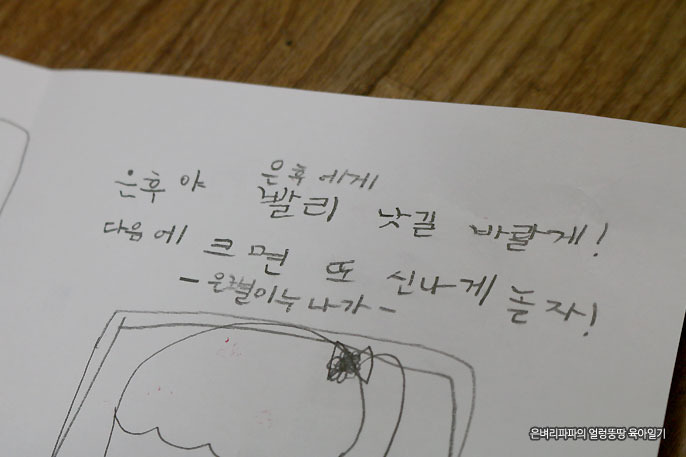 에게
은후야 빨리 낫길 바랄게!
다음에 크면 또 신나게 놀자!
- 은별이누나가 -
은벼리파파의 얼렁뚱땅 육아일기